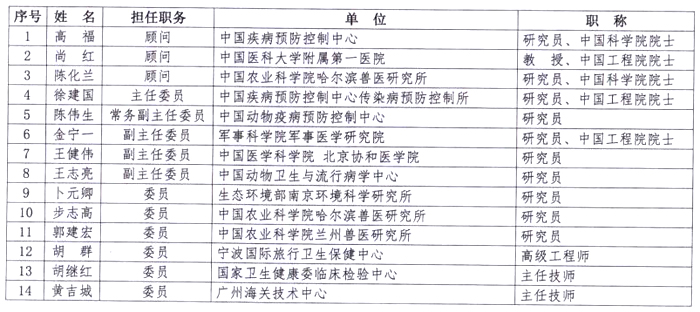 序号 姓 名 担任职务 单 位 职 称
1 高 福 顾问 中国疾病预防控制中心 研究员、中国科学院院士
2 尚 红 顾问 中国医科大学附属第一医院 教 授、中国工程院院士
3 陈化兰 顾问 中国农业科学院哈尔滨兽医研究所 研究员、中国科学院院士
4 徐建国 主任委员 中国疾病预防控制中心传染病预防控制所 研究员、中国工程院院士
5 陈伟生 常务副主任委员 中国动物疫病预防控制中心 研究员
6 金宁一 副主任委员 军事科学院军事医学研究院 研究员、中国工程院院士
7 王健伟 副主任委员 中国医学科学院 北京协和医学院 研究员
8 王志亮 副主任委员 中国动物卫生与流行病学中心 研究员
9 卜元卿 委员 生态环境部南京环境科学研究所 研究员
10 步志高 委员 中国农业科学院哈尔滨兽医研究所 研究员
11 郭建宏 委员 中国农业科学院兰州兽医研究所 研究员
12 胡 群 委员 宁波国际旅行卫生保健中心 高级工程师
13 胡继红 委员 国家卫生健康委临床检验中心 主任技师
14 黄吉城 委员 广州海关技术中心 主任技师